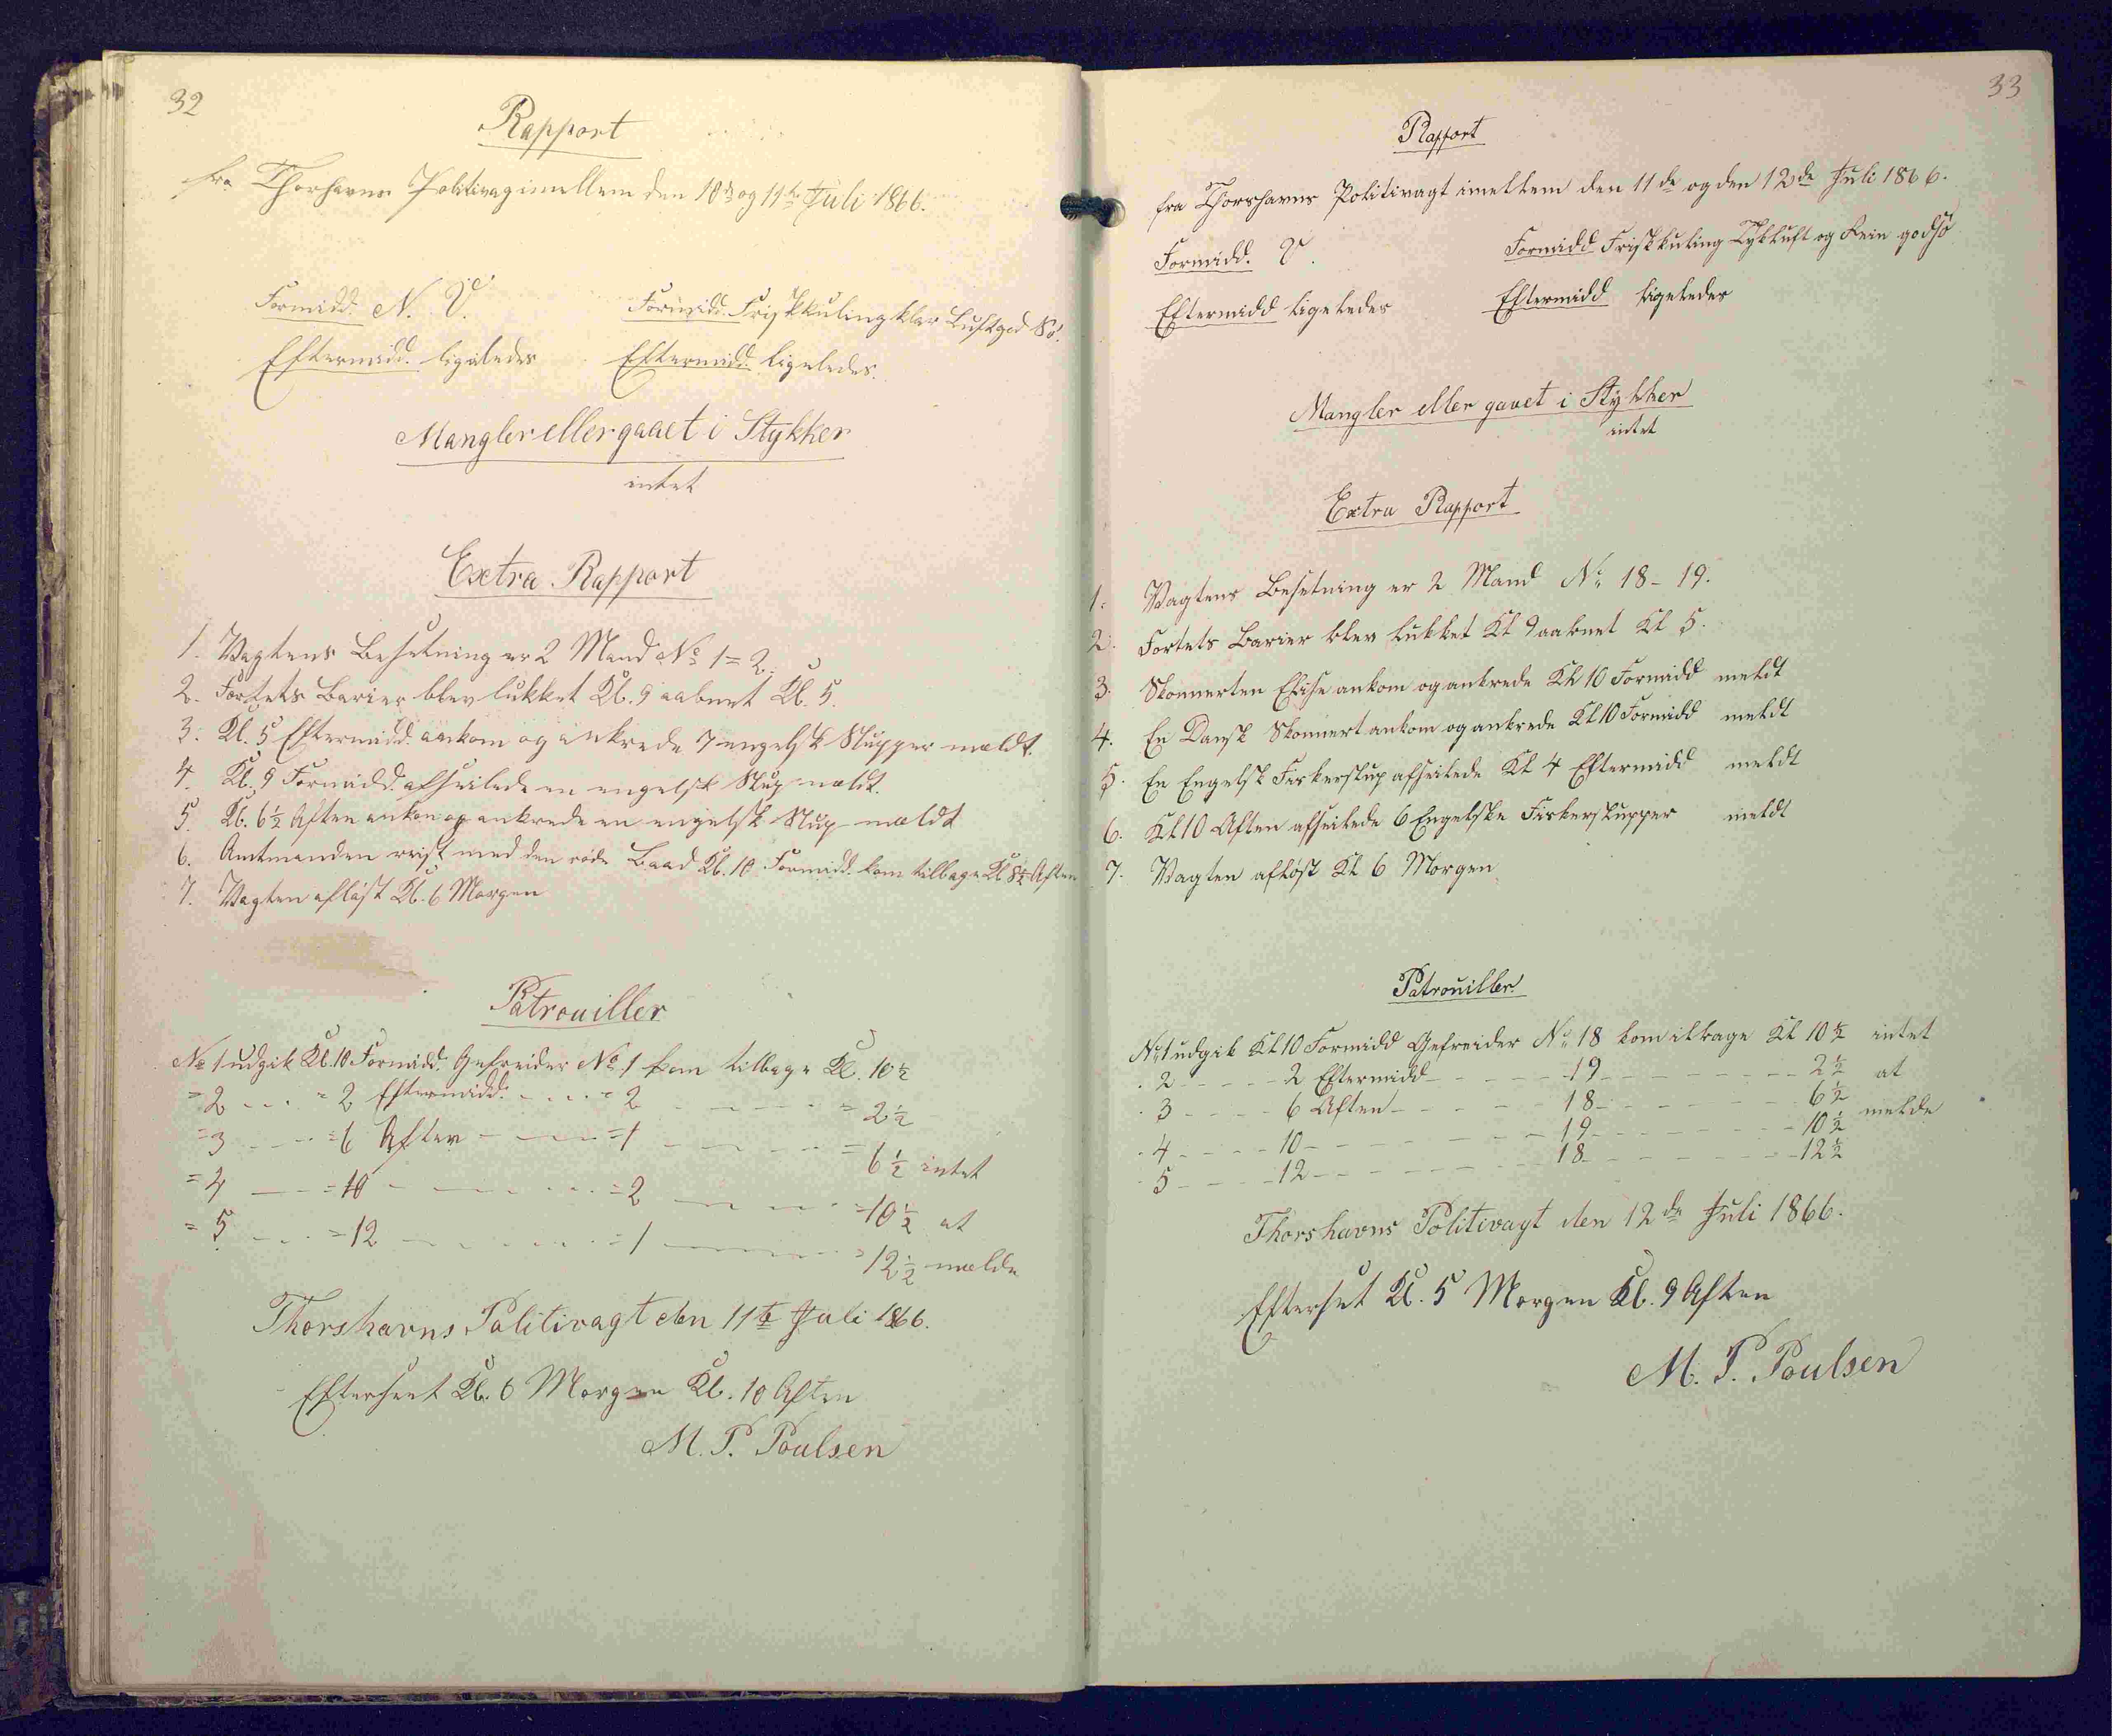 32
Rapport
fra Thorhavns Politivagimellem den 10de og 11te Juli 1866.
Formidd. N. V. Formidd. Friskkuling klar Luft god Sø.
Eftermidd. ligeledes Eftermidd. ligeledes.
Mangler eller gaaet i Stykker
intet
Extra Rapport
1. Vagtens Besetning er 2 Mand No 1=2.
2. Fortets Barier blev lukket Kl. 9 aabnet Kl. 5.
3. Kl. 5 Eftermidd. ankom og ankrede 7 engelsk Slupper meldt.
4. Kl. 9 Formidd. afseilede en engelsk Slup meldt.
5. Kl. 6½ Aften ankom og ankrede en engelsk Slup meldt
6. Amtmanden reist med den røde Baad Kl. 10 Formidd. kom tilbage Kl 8½ Aften
7. Vagten afløst Kl. 6 Morgen
Patrouiller
No 1 udgik Kl. 10 Formidd. Gefreider No 1 kom tilbage Kl. 10½
= 2 - - - = 2 Eftermidd. - - - = 2 - - - = 2½
= 3 - - - = 6 Aften - - - = 1 - - - = 6½ intet
= 4 - - - = 10 - - - = 2 - - - = 10½ at
= 5 - - - = 12 - - - = 1 - - - = 12½ melde
Thorshavns Politivagt den 11te Juli 1866.
Efterseet Kl. 6 Morgen Kl. 10 Aften
M. P. Poulsen
33
Rapport
fra Thorshavns Politivagt imellem den 11de og den 12de Juli 1866.
Formidd. V. Formidd Friskkuling Tykluft og Rein godsø
Eftermidd ligeledes Eftermidd ligeledes
Mangler eller gaaet i Stykker
intet
Extra Rapport
1. Vagtens Besetning er 2 Mand No 18 - 19.
2. Fortets Barier blev lukket Kl 9 aabnet Kl 5.
3. Skonnerten Elise ankom og ankrede Kl 10 Formidd meldt
4. En Dansk Skonnert ankom og ankrede Kl 10 Formidd meldt
5. En Engelsk Fiskerslup afseilede Kl 4 Eftermidd meldt
6. Kl 10 Aften afseilede 6 Engelske Fiskerslupper meldt
7. Vagten afløst Kl 6 Morgen
Patrouiller
No 1 udgik Kl 10 Formidd Gefreider No 18 kom ilbage Kl 10½ intet
- 2 - - - - 2 Eftermidd - - - - 19 - - - - 2½ at
- 3 - - - - 6 Aften - - - - 18 - - - - 6½ melde
- 4 - - - - 10 - - - - 19 - - - - 10½
- 5 - - - - 12 - - - - 18 - - - - 12½
Thorshavns Politivagt den 12de Juli 1866.
Efterset Kl. 5 Morgen Kl. 9 Aften
M. P. Poulsen